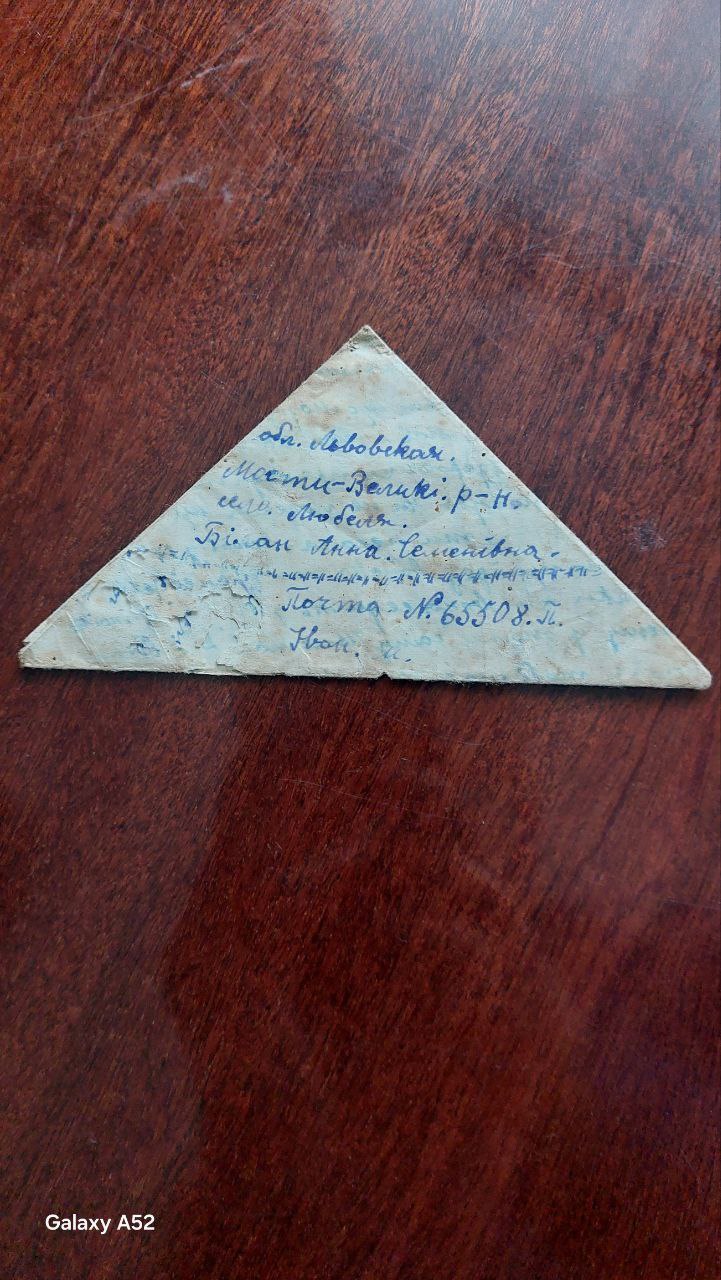 обл. Львовская.
Мости-Великі. р-н.
село. Любеля.
Білан Анна. Семенівна.
Почта №. 65508. П.
Galaxy A52